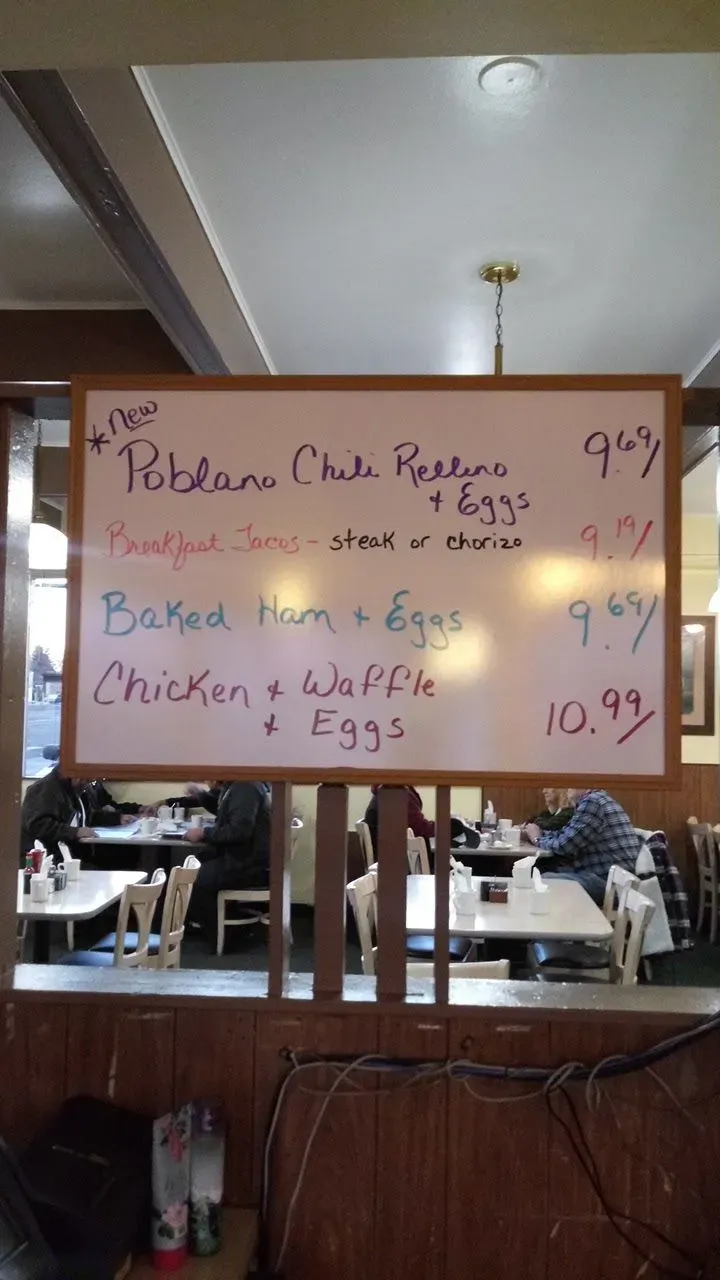 *New
Poblano Chili Relleno 9.69/
+ Eggs
Breakfast Tacos - steak or chorizo 9.19/
Baked Ham + Eggs 9.69/
Chicken + Waffle
+ Eggs 10.99/